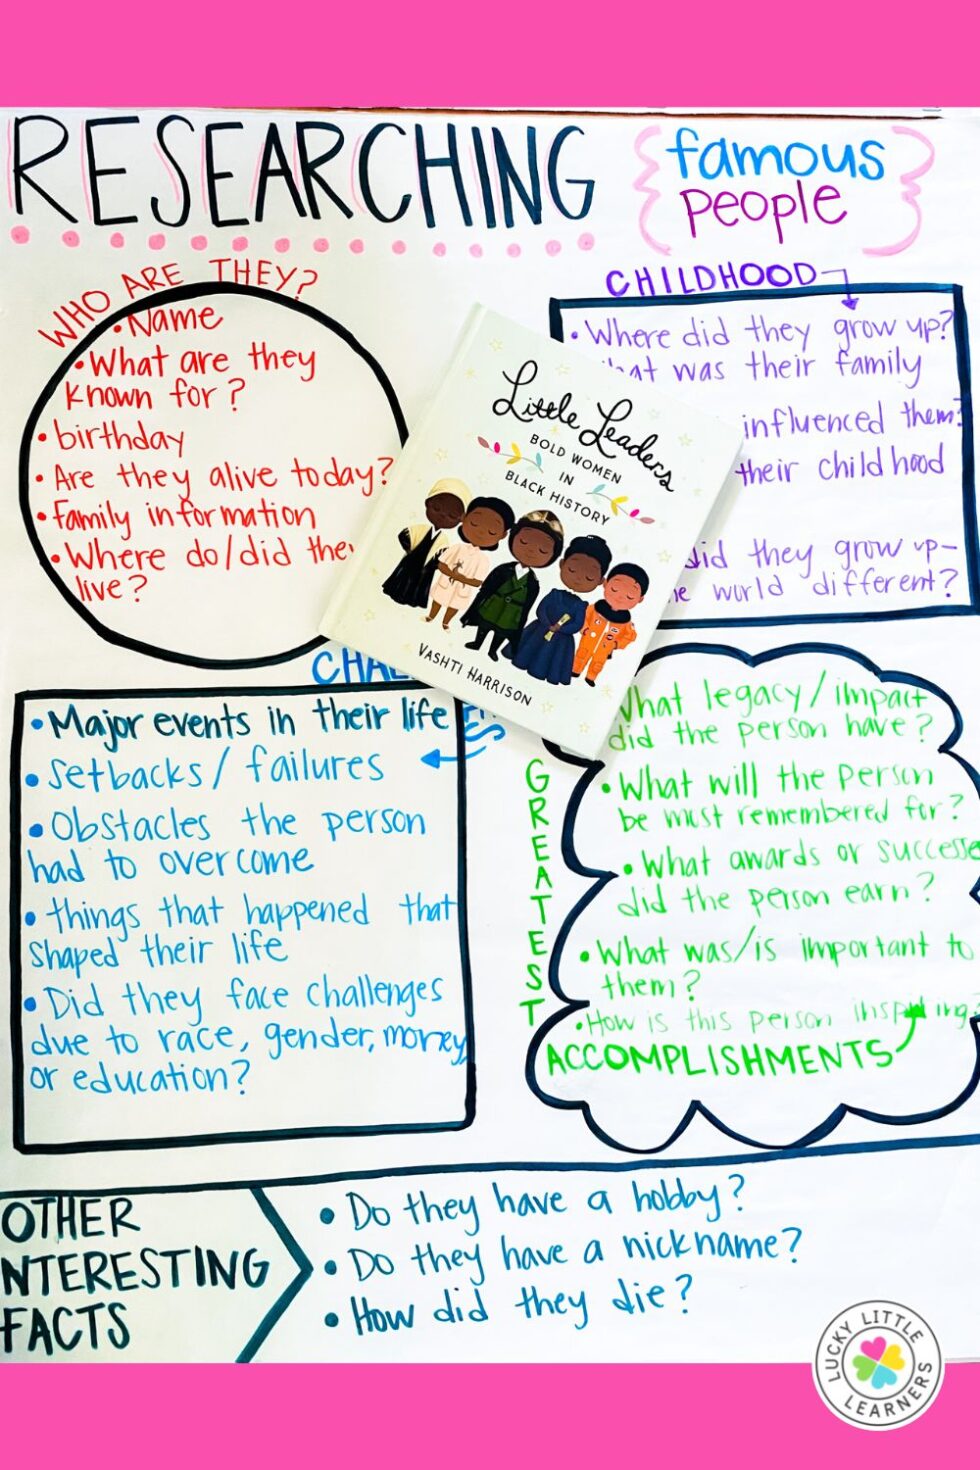 RESEARCHING
famous
people
WHO ARE THEY?
• Name
• What are they
known for?
• birthday
• Are they alive today?
• Family information
• Where do/did they
live?
CHILDHOOD
• Where did they grow up?
was their family
influenced them?
their childhood
did they grow up-
world different?
Little Leaders
BOLD WOMEN
IN
BLACK HISTORY
VASHTI HARRISON
• Major events in their life
• Setbacks/failures
• Obstacles the person
had to overcome
• things that happened that
shaped their life
• Did they face challenges
due to race, gender, money,
or education?
GREATEST
ACCOMPLISHMENTS
What legacy/impact
did the person have?
• What will the person
be most remembered for?
• What awards or successe
did the person earn?
• What was/is important to
them?
• How is this person inspiring?
OTHER
NTERESTING
FACTS
• Do they have a hobby?
• Do they have a nickname?
• How did they die?
LUCKY LITTLE
LEARNERS